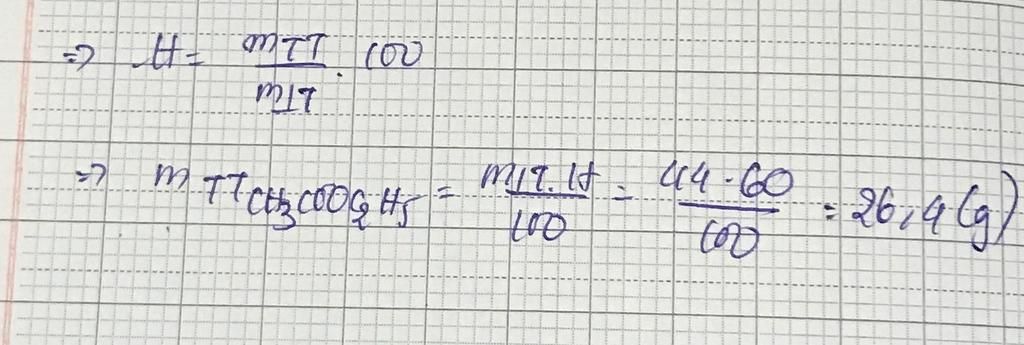 => H = mTT / mLT . 100
=> mTT CH3COOC2H5 = mLT.H / 100 = 44.60 / 100 = 26,4 (g)